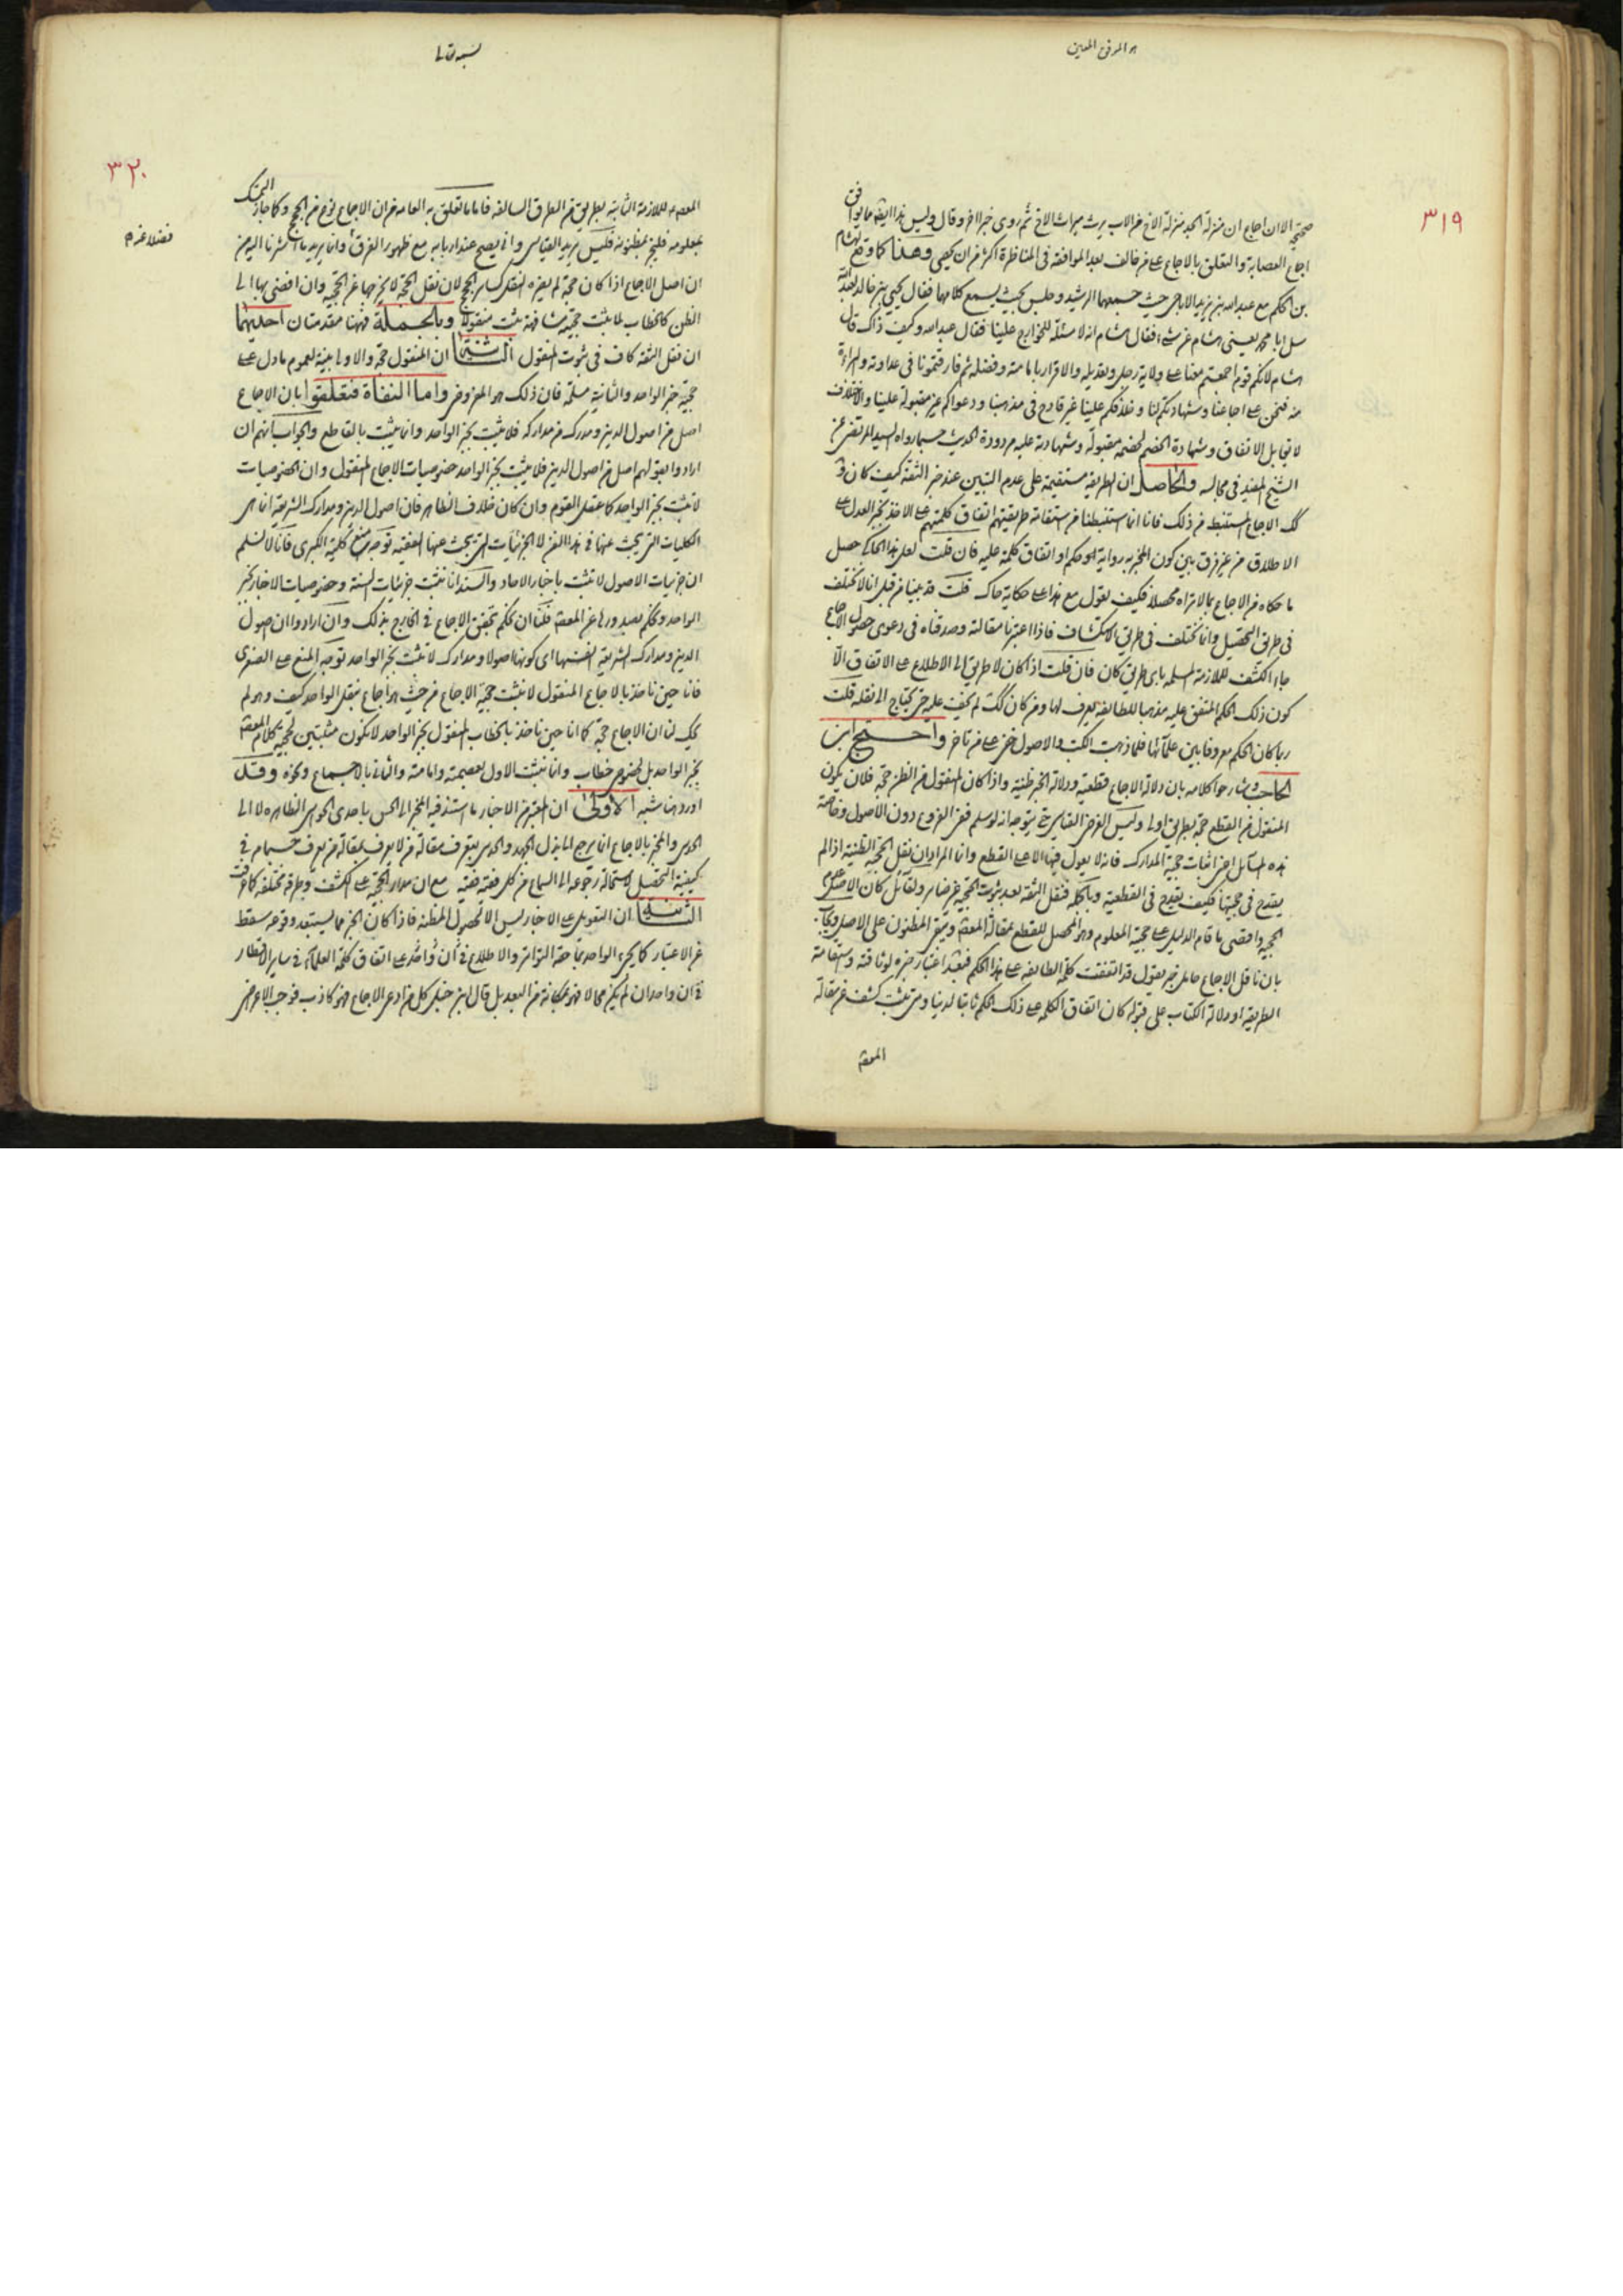 هو الموفق المعین
٣١٩
صحيحة الا ان اجماع ان منزلة الجد منزلة الاخ من الاب يرث ميراث الاخ ثم روى خبرا اخر وقال وليس هذا ايضا مما يوافق
اجماع العصابة والتعلق بالاجماع على من خالف بعد الموافقة فى المناظرة اكثر من ان يحصى وهذا كما وقع لهشام
بن الحكم مع عبدالله بن يزيد الاباضى حيث جمعهما الرشيد وجلس بحيث يسمع كلامهما فقال يحيى بن خالد لعبد الله
سل ابا محمد يعنى هشام عن شئ فقال هشام انه لا مسئلة للخوارج علينا فقال عبدالله وكيف ذاك قال
هشام لانكم قوم اجمعتم معنا على ولاية رجل وتعديله والاقرار بامامته وفضله ثم فارقتمونا فى عداوته والبراءة
منه فنحن على اجماعنا وشهادتكم لنا وخلافكم علينا غير قادح فى مذهبنا ودعواكم غير مقبولة علينا والاختلاف
لا يقابل الاتفاق وشهادة الخصم لخصمه مقبولة وشهادته عليه مردودة الحديث حسبما رواه السيد المرتضى عن
الشيخ المفيد فى مجالسه والحاصل ان الطريقة مستقيمة على عدم التبين عند خبر الثقة كيف كان و
الاجماع المستنبط من ذلك فانا انما استنبطنا من استقامة طريقتهم اتفاق كلمتهم على الاخذ بخبر العدل على
الاطلاق من غير فرق بين كون المخبر به رواية او حكم او اتفاق كلمة عليه فان قلت لعل هذا الحاكى حصل
ما حكاه من الاجماع بما لا تراه محصلا فكيف تعول مع هذا على حكاية حاك قلت قد بينا من قبل انا لا نختلف
فى طريق التحصيل وانما نختلف فى طريق الاستكشاف فاذا اعتبرنا مقالته وصدقناه فى دعوى حصول الاجماع
جاء الكشف للملازمة المسلمة باى طريق كان فان قلت اذا كان لا طريق الى الاطلاع على الاتفاق الا
كون ذلك الحكم المتفق عليه مذهبا للطائفة يعرف لها ومن كان كك لم يخف عليه حتى يحتاج الى نقله قلت
ربما كان الحكم معروفا بين علمائها فلما ذهبت الكتب والاصول خفى على من تاخر واحتج ابن
الحاجب وشارحوا كلامه بان دلالة الاجماع قطعية ودلالة الخبر ظنية واذا كان المنقول من الظن حجة فلان يكون
المنقول من القطع حجة بطريق اولى وليس الغرض القياس حتى يتوجه انه لو سلم ففى الفروع دون الاصول وخاصة
هذه المسائل اعنى اثبات حجية المدارك فانه لا يعول فيها الا على القطع وانما المراد ان نقل الحجية الظنية اذا لم
يقدح فى حجيتها فكيف يقدح فى القطعية وبالجملة فنقل الثقة بعد ثبوت الحجية غير ضار ولقائل كان الاصل عدم
الحجية واقصى ما قام الدليل على حجية المعلوم وهو المحصل للقطع بمقالة المعصوم وبقى المظنون على الاصل ويجاب
بان ناقل الاجماع حامل خبر يقول قد اتفقت كلمة الطائفة على هذا الحكم فبعد اعتبار خبره لوثاقته واستقامة
الطريقة او دلالة الكتاب على قبوله كان اتفاق الكلمة على ذلك الحكم ثابتا لدينا ومتى ثبت كشف عن مقالة
المعصوم
٣٢٠
المعصوم للملازمة الثابتة بطريق من الطرق السالفة فاما ما تعلق به العامة من ان الاجماع نوع من الحجج وكما جاز التمسك
بمعلومه فليجز بمظنونه فليس يريد القياس
ان اصل الاجماع اذا كان حجة لم يضره النقل كساير الحجج لان نقل الحجة لا يخرجها عن الحجية وان افضى بها الى
الظن كالخطاب لما يثبت حجيته مشافهة ثبت منقولا وبالجملة فهنا مقدمتان احديهما
ان نقل الثقة كاف فى ثبوت المنقول الثانية ان المنقول حجة والاولى بينة لعموم ما دل على
حجية خبر الواحد والثانية مسلمة فان ذلك هو المفروض واما النفاة فتعلقوا بان الاجماع
اصل من اصول الدين ومدرك من مداركه فلا يثبت بخبر الواحد وانما يثبت بالقاطع والجواب انهم ان
ارادوا بقولهم اصل من اصول الدين فلا يثبت بخبر الواحد خصوصيات الاجماع المنقول وان الخصوصيات
لا تثبت بخبر الواحد كما عقل القوم وان كان خلاف الظاهر فان اصول الدين ومدارك الشريعة انما هى
الكليات التى يبحث عنها فى هذا الفن لا الجزئيات التى يبحث عنها الفقيه توجه منع كلية الكبرى فانا لا نسلم
ان جزئيات الاصول لا تثبت باخبار الاحاد والسند انا نثبت جزئيات السنة وخصوصيات الاخبار بخبر
الواحد ونحكم بصدورها عن المعصوم فلنا ان نحكم بتحقق الاجماع فى الخارج بذلك وان ارادوا ان اصول
الدين ومدارك الشريعة انفسها اى كونها اصولا ومدارك لا تثبت بخبر الواحد توجه المنع على الصغرى
فانا حين ناخذ بالاجماع المنقول لا نثبت حجية الاجماع من حيث هو اجماع بنقل الواحد كيف وهو لم
يحك لنا ان الاجماع حجة كما انا حين ناخذ بالخطاب المنقول بخبر الواحد لا نكون مثبتين لحجية كلام المعصوم
بخبر الواحد بل لخصوص خطاب وانما نثبت الاول بعصمته وامامته والثانى بالاجماع ونحوه وقد
اوردها شبه الاولى ان المعتبر من الاخبار ما استند فيه المخبر الى الحس باحدى الحواس الظاهرة لا الى
الحدس والمخبر بالاجماع انما يرجع الى بذل الجهد والحدس بتعرف مقالة من لا يعرف بمقالة من يعرف حسبما مر فى
كيفية التحصيل لاستحالة رجوعه الى السماع من كل فقيه فقيه مع ان مدار الحجية على الكشف وطرقه مختلفة كما عرفت
الثانية ان التعويل على الاخبار ليس الا لحصول المظنة فاذا كان الخبر مما يستبعد وقوعه سقط
عن الاعتبار كما يحكى الواحد ما حقه التواتر والاطلاع فى آن واحد على اتفاق كلمة العلماء فى ساير الاقطار
فى آن واحد ان لم يكن محالا فهو بمكانة من البعد بل قال ابن حنبل كل من ادعى الاجماع فهو كاذب فوجب الاعراض